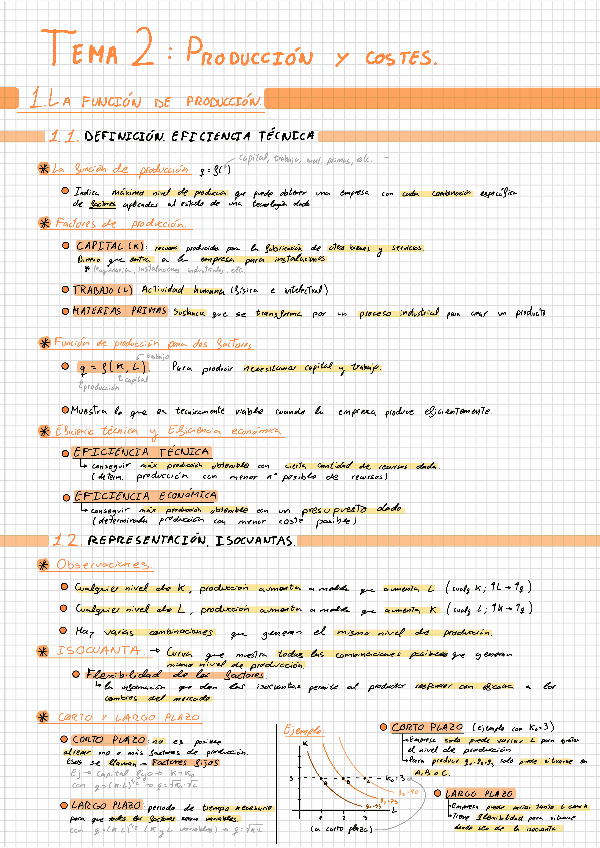 TEMA 2: PRODUCCIÓN Y COSTES.
1. LA FUNCIÓN DE PRODUCCIÓN.
1.1. DEFINICIÓN. EFICIENCIA TÉCNICA
capital, trabajo, mat. primas, etc.
* La función de producción q = f( )
Indica máximo nivel de producción que puede obtener una empresa con cada combinación específica
de factores aplicados al estado de una tecnología dada
* Factores de producción.
CAPITAL (K): recursos producidos para la fabricación de otros bienes y servicios.
Dinero que entra a la empresa para instalaciones
* maquinaria, instalaciones industriales, etc.
TRABAJO (L) Actividad humana (física e intelectual)
MATERIAS PRIMAS Sustancia que se transforma por un proceso industrial para crear un producto
* Función de producción para dos factores
trabajo
q = f(K, L) Para producir necesitamos capital y trabajo.
capital
producción
Muestra lo que es técnicamente viable cuando la empresa produce eficientemente.
* Eficiencia técnica y Eficiencia económica
EFICIENCIA TÉCNICA
↳ conseguir más producción obtenible con cierta cantidad de recursos dada.
(determ. producción con menor nº posible de recursos)
EFICIENCIA ECONÓMICA
↳ conseguir más producción obtenible con un presupuesto dado
(determinada producción con menor coste posible)
1.2. REPRESENTACIÓN. ISOCUANTAS.
* Observaciones
Cualquier nivel de K, producción aumenta a medida que aumenta L (cualq K; ↑L → ↑q)
Cualquier nivel de L, producción aumenta a medida que aumenta K (cualq L; ↑K → ↑q)
Hay varias combinaciones que generan el mismo nivel de producción.
* ISOCUANTA. → Curva que muestra todas las combinaciones posibles que generan
mismo nivel de producción.
Flexibilidad de los factores.
↳ la información que dan las isocuantas permite al productor responder con eficacia a los
cambios del mercado
* CORTO Y LARGO PLAZO
CORTO PLAZO: no es posible
alterar uno o más factores de producción.
Estos se llaman → Factores fijos
Ej → Capital fijo → K = K₀
LARGO PLAZO periodo de tiempo necesario
para que todos los factores sean variables.
Ejemplo:
K
3
A B C
K₀ = 3
1 2 3
L
(a corto plazo)
CORTO PLAZO (ejemplo con K₀ = 3)
Empresa solo puede variar L para
el nivel de producción
Para producir solo puede situarse en
A, B o C.
LARGO PLAZO
Empresa puede variar tanto L como K
Tiene flexibilidad para
de la isocuanta